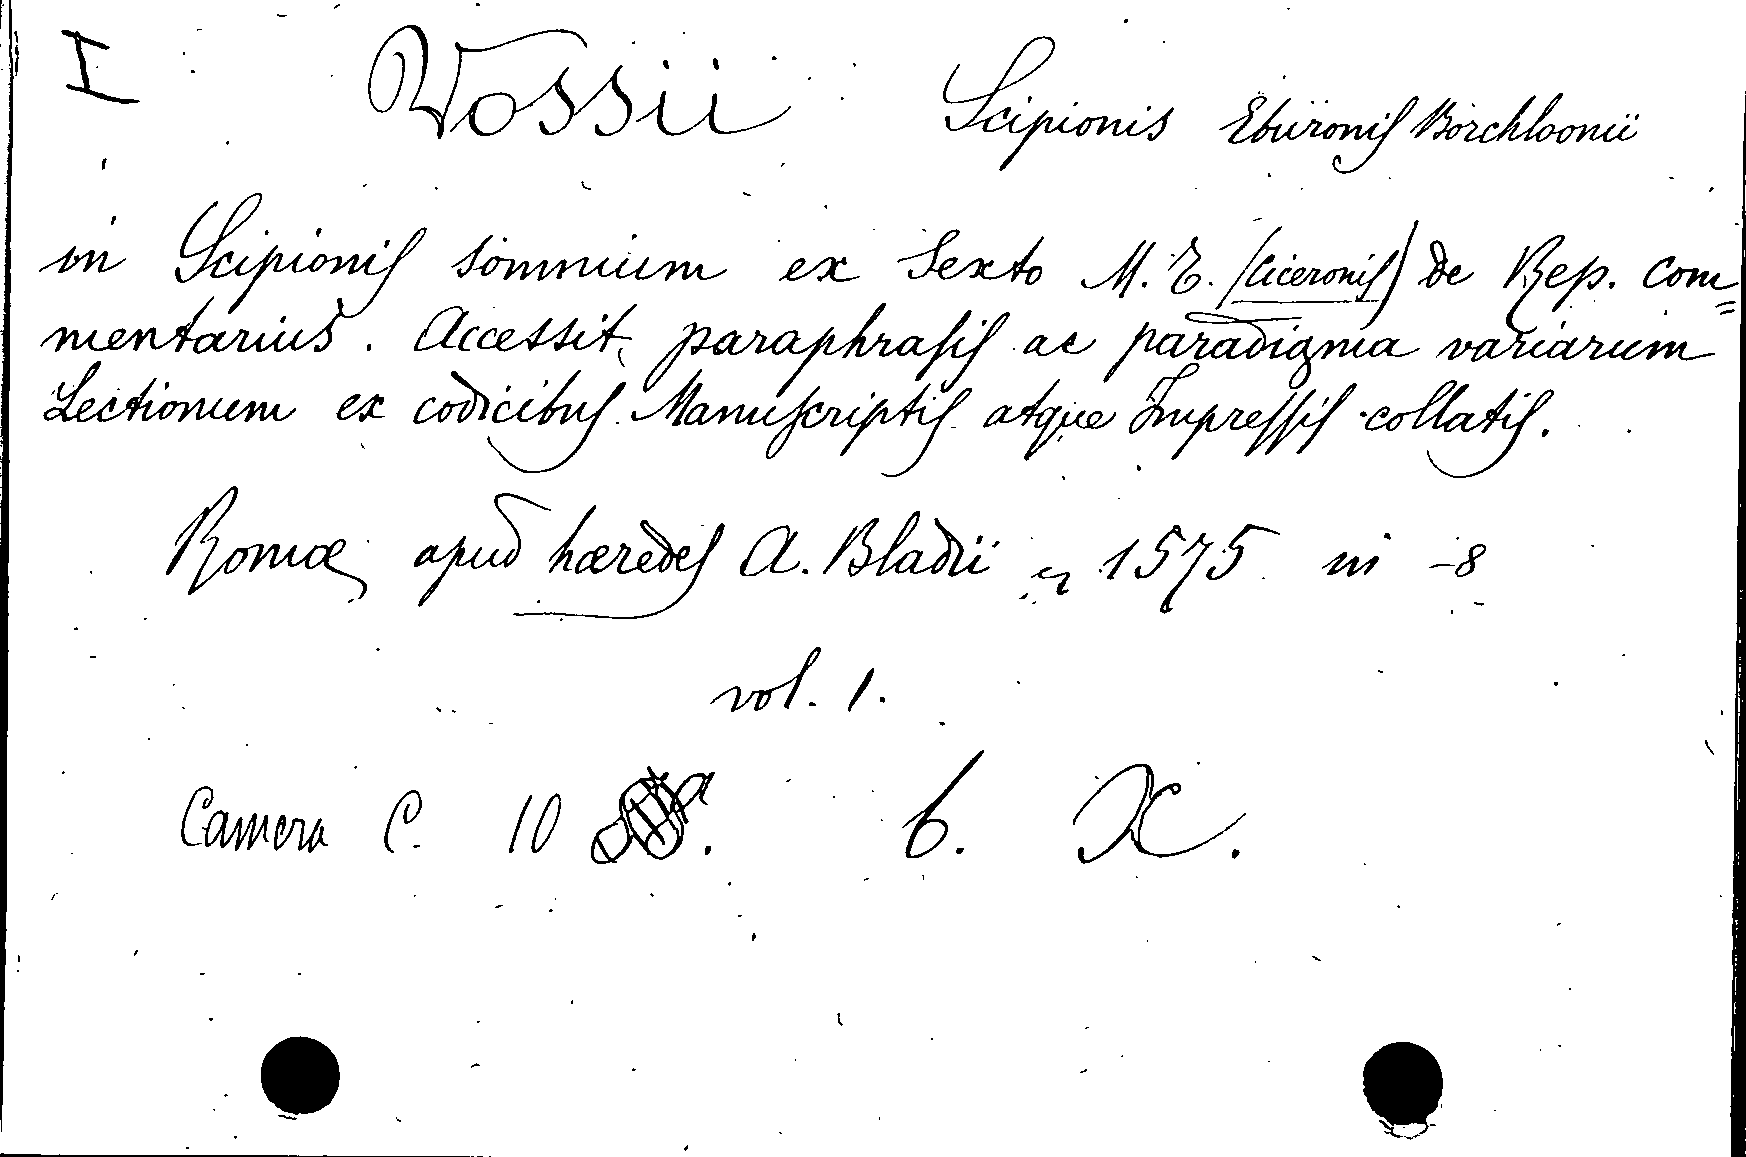 I Vossii Scipionis Eburonis Borchloonii
in Scipionis somnium ex Sexto M. T. (Ciceronis) de Rep. com=
mentarius. Accessit paraphrasis ac paradigma variarum
Lectionum ex codicibus Manuscriptis atque Impressis collatis.
Romæ, apud hæredes A. Bladii 1575 in -8
vol. 1.
Camera C. 10 6. X.